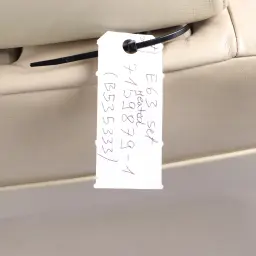 E63 set
heated
7159879-1
(B535333)